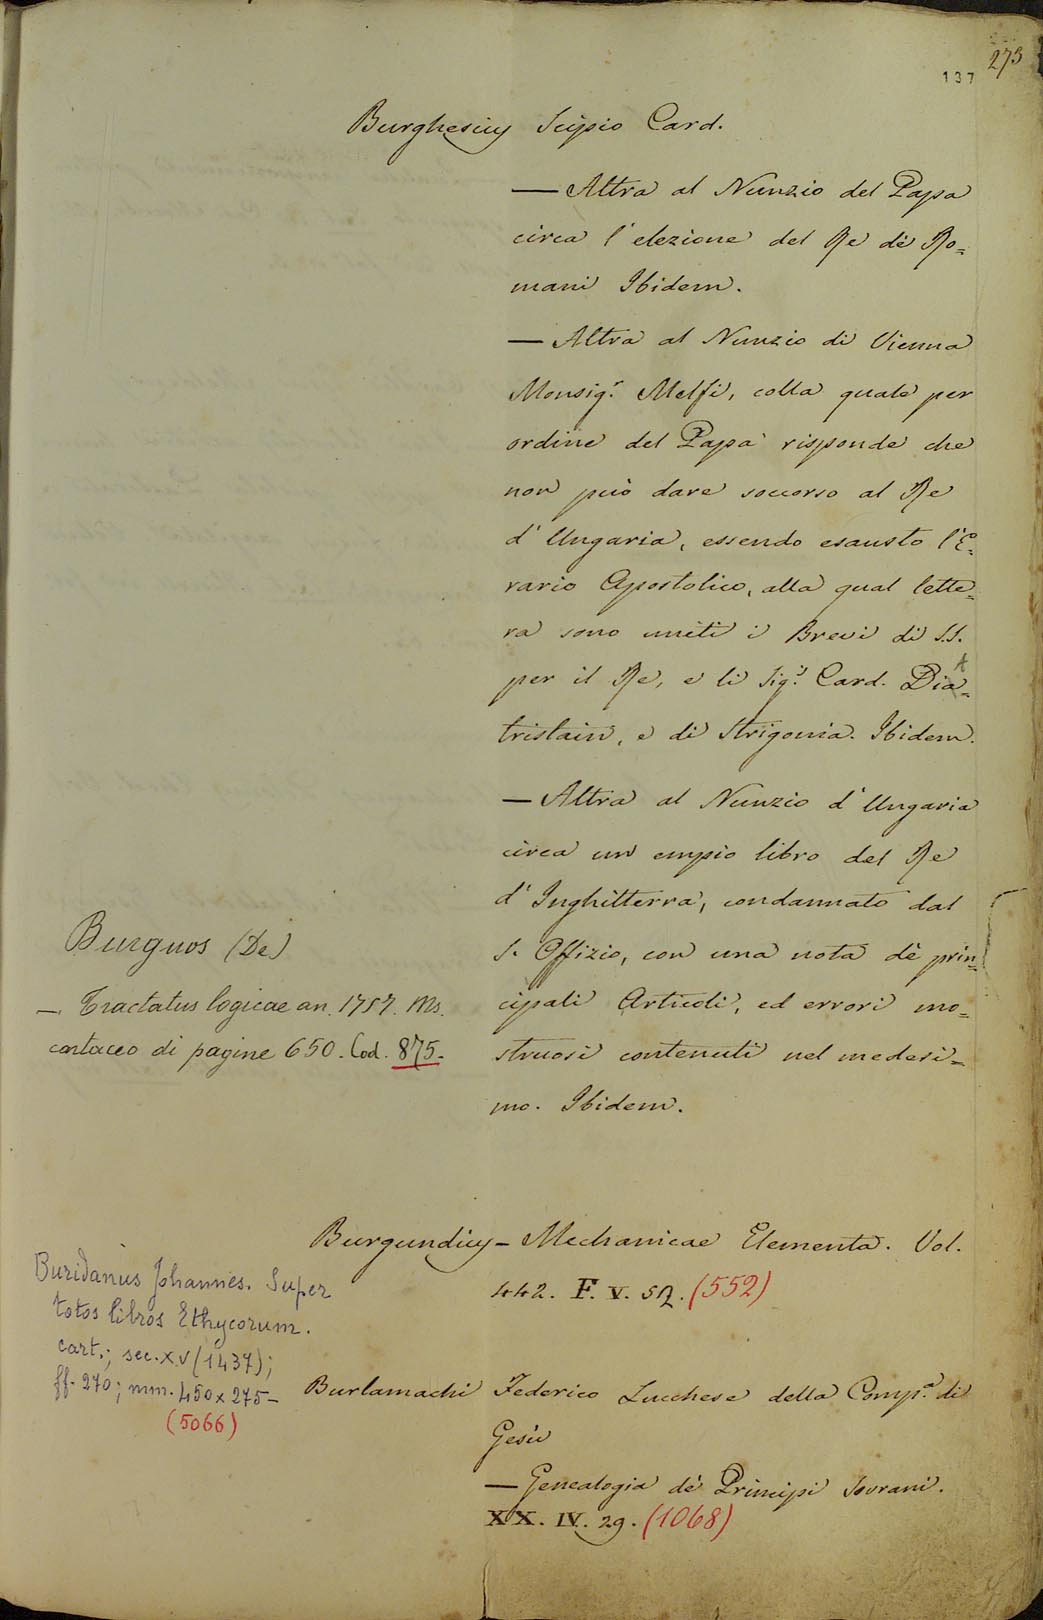 273
137
Burghesius Scipio Card.
— Altra al Nunzio del Papa
circa l'elezione del Re de' Ro=
mani Ibidem.
— Altra al Nunzio di Vienna
Monsig.r Melfi, colla quale per
ordine del Papa risponde che
non può dare soccorso al Re
d'Ungaria, essendo esausto l'E=
rario Apostolico, alla qual lette=
ra sono uniti i Brevi di S.S.
per il Re, e li Sig.i Card. Dia=
tristain, e di Strigonia. Ibidem.
— Altra al Nunzio d'Ungaria
circa un empio libro del Re
d'Inghilterra, condannato dal
S. Offizio, con una nota de' prin=
cipali Articoli, ed errori mo=
struosi contenuti nel medesi=
mo. Ibidem.
Burguos (De)
— Tractatus logicae an. 1757. Ms.
cartaceo di pagine 650. Cod. 875.
Burgundius — Mechanicae Elementa. Vol.
442. F. V. 52. (552)
Buridanus Johannes. Super
totos libros Ethycorum.
cart.; sec. XV (1437);
ff. 270; mm. 450 x 275 —
(5066)
Burlamachi Federico Lucchese della Comp.a di
Gesù
— Genealogia de' Principi Sovrani.
XX. IV. 29. (1068)